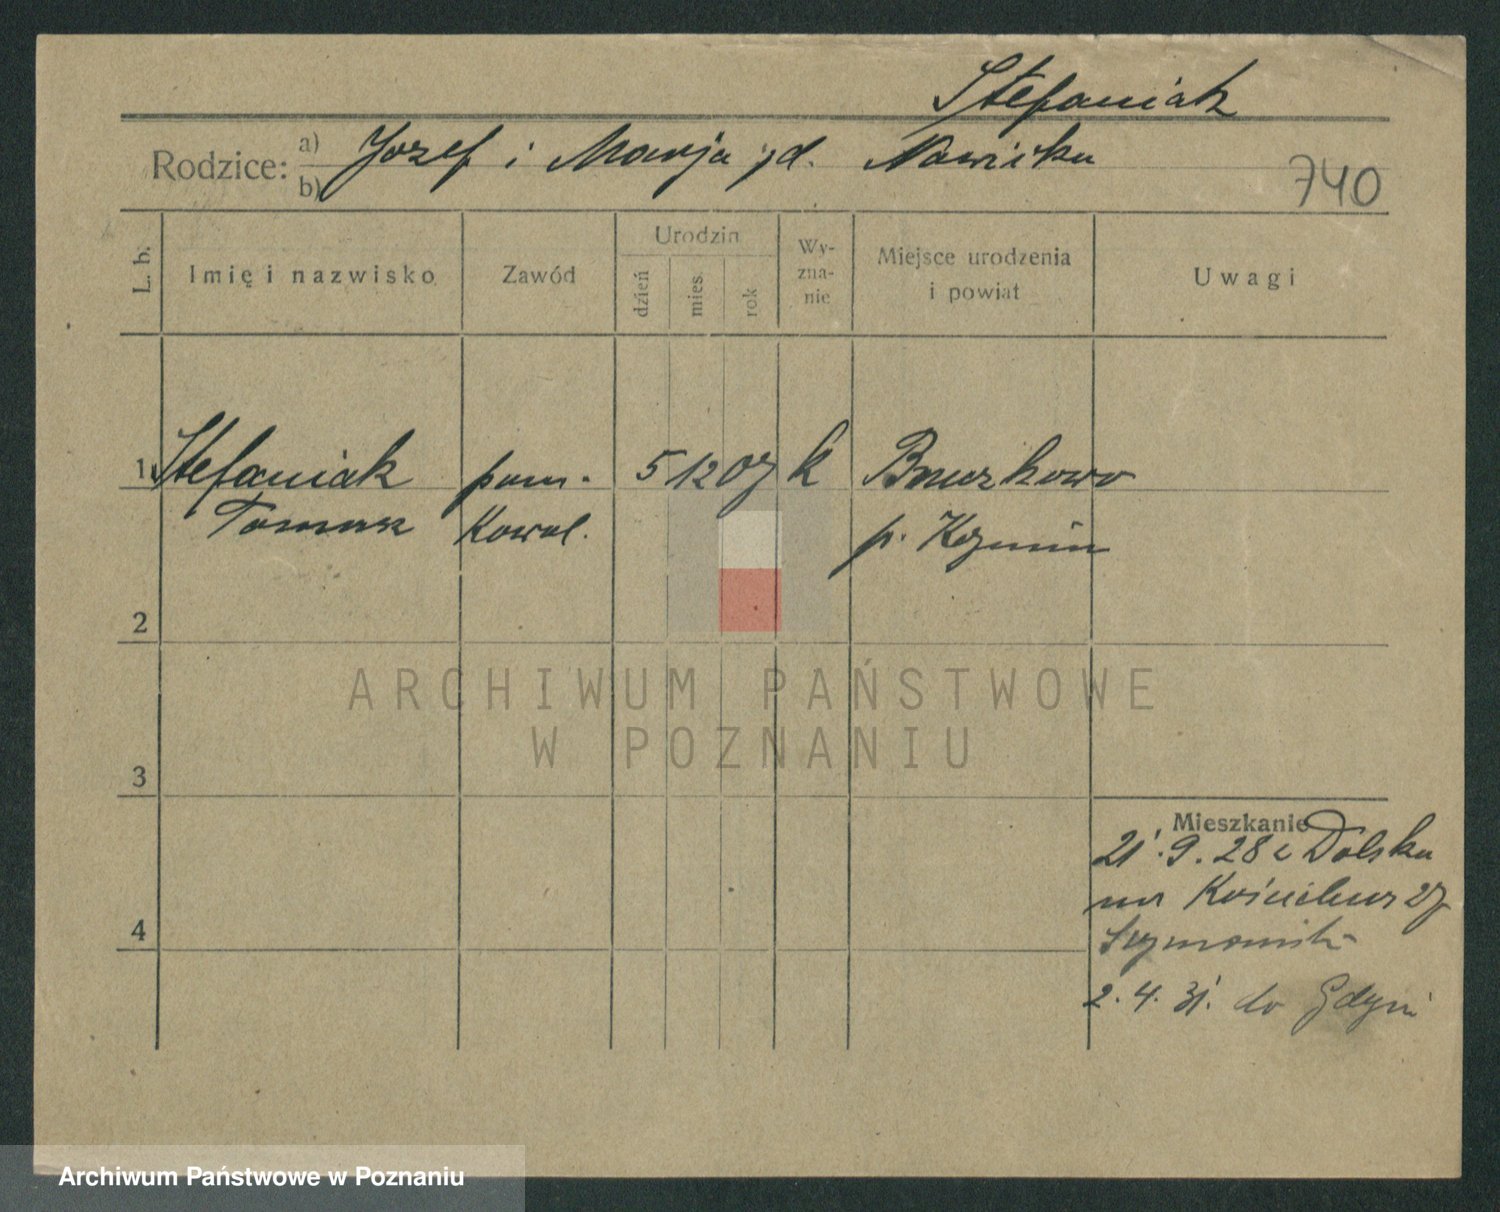 Stefaniak
Rodzice: a) Jozef i Marja zd. Nawicka
b)
740
L. b.
Imię i nazwisko
Zawód
Urodzin
dzień
mies.
rok
Wy-
zna-
nie
Miejsce urodzenia
i powiat
Uwagi
1 Stefaniak pom. 5 12 07 k
Tomasz Kowal. p.
2
ARCHIWUM PAŃSTWOWE
W POZNANIU
3
Mieszkanie
21.9.28 z Dolska
na 27
4
2.4.31. do Gdyni
Archiwum Państwowe w Poznaniu